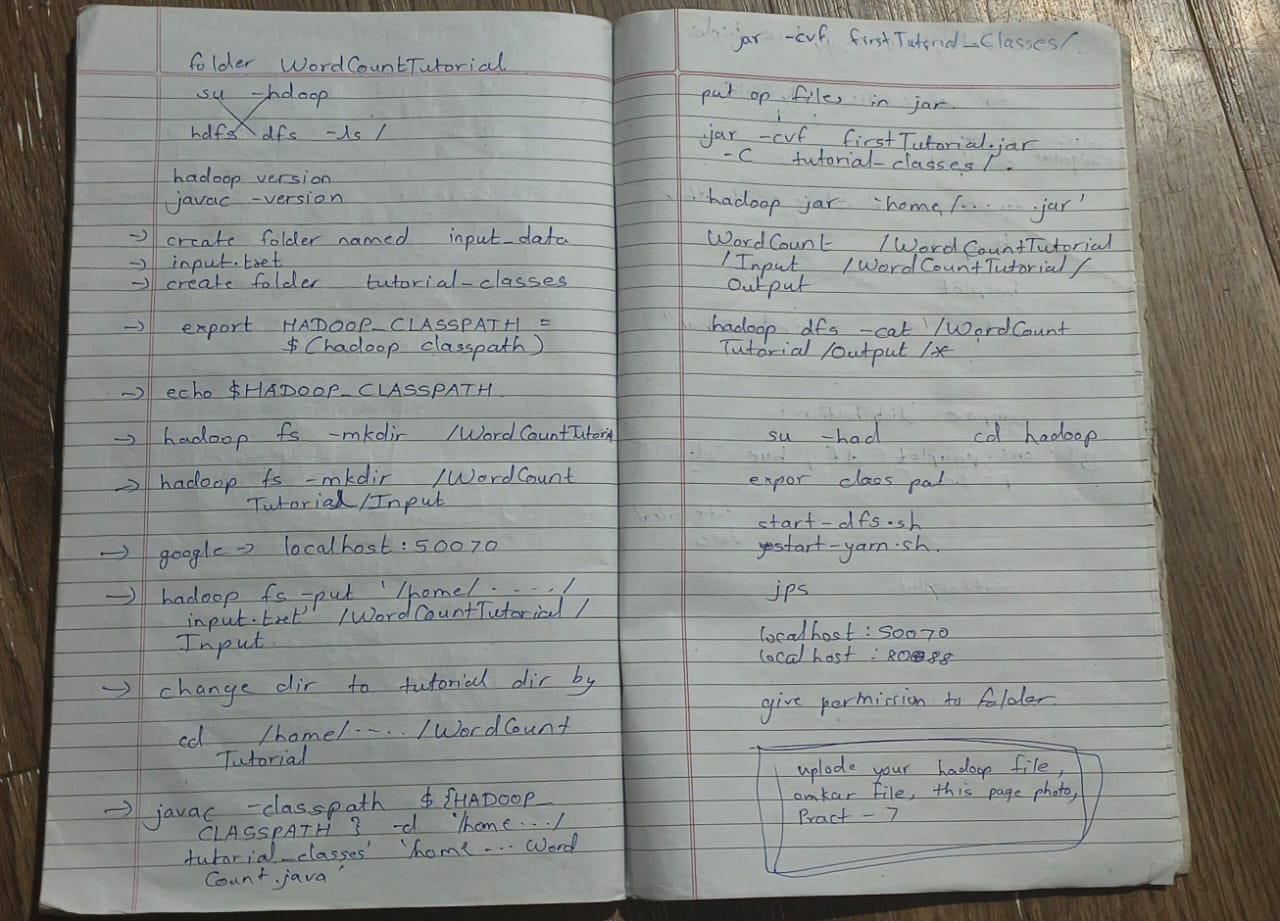 folder WordCountTutorial
su -hdoop
hdfs dfs -ls /
hadoop version
javac -version
→ create folder named input_data
→ input.txt
→ create folder tutorial-classes
→ export HADOOP_CLASSPATH =
$(hadoop classpath)
→ echo $HADOOP_CLASSPATH
→ hadoop fs -mkdir /WordCountTutoria
→ hadoop fs -mkdir /WordCount
Tutorial/Input
→ google → localhost:50070
→ hadoop fs -put '/home/...../
input.txt' /WordCountTutorial/
Input
→ change dir to tutorial dir by
cd /home/..../WordCount
Tutorial
→ javac -classpath ${HADOOP_
CLASSPATH } -d '/home.../
tutorial_classes' '/home... Word
Count.java'
jar -cvf firstTutorial_Classes/
put op files in jar.
jar -cvf firstTutorial.jar
-C tutorial-classes/ .
hadoop jar 'home/.......jar'
WordCount /WordCountTutorial
/Input /WordCountTutorial/
Output
hadoop dfs -cat /WordCount
Tutorial/Output/*
su -had cd hadoop
expor class pat
start-dfs.sh
start-yarn.sh.
jps
localhost:50070
localhost:8088
give permission to folder
uplode your hadoop file,
omkar file, this page photo,
Pract - 7